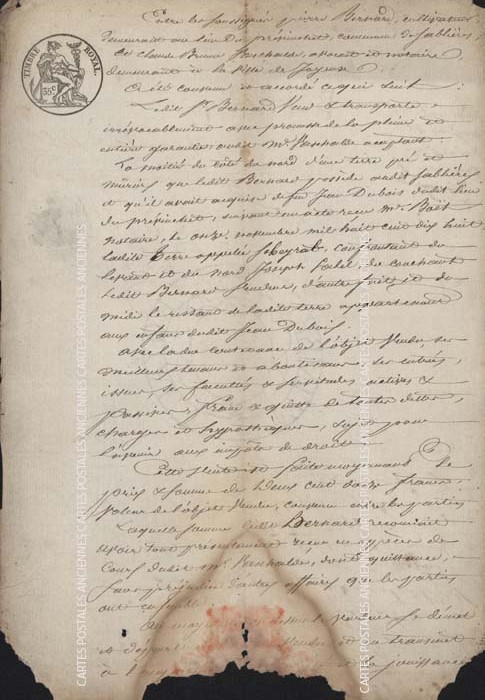 TIMBRE ROYAL.
35c
Entre les soussignés pierre Bernard, cultivateur
demeurant au lieu du commune de Sablières
Et Claude Bruno avocat et notaire,
demeurant à la ville de Joyeuse
a été convenu et accordé ce qui suit :
Ledit Sr. Bernard Vend & transporte
irrévocablement avec promesse de la pleine et
entière garantie audit Mr. acceptant
La moitié du côté du nord d'une terre pré et
muriers que ledit Bernard possède audit Sablières
et qu'il avait acquise de feu Jean Dubois dudit lieu
du suivant un acte reçu Me.
notaire, le onze novembre mil huit cent dix huit
ladite terre appelée confrontant du
levant et du nord Joseph du couchant
ledit Bernard vendeur, d'autre pièce et du
midi le restant de ladite terre appartenant
aux enfans dudit Jean Dubois.
avec la due contenance de l'objet vendu, ses
meilleurs termes et aboutissans, ses entrées,
issues, ses facultés & servitudes actives &
passives, franc & quitte de toutes dettes,
charges et hypothèques, sujet pour
l'avenir aux impôts de droit.
Cette Vente est faite moyennant le
prix & somme de deux cent francs
valeur de l'objet vendu, convenu entre les parties
Laquelle somme ledit Bernard reconnait
avoir tout présentement reçue en espèces de
Cours dudit Mr. dont quittance,
sans préjudice d'autres affaires que les parties
ont ensemble.
Au moyen vendeur se démet
et vendu et en transmet
à et jouissance
CARTES POSTALES ANCIENNES CARTES POSTALES ANCIENNES CARTES POSTALES ANCIENNES